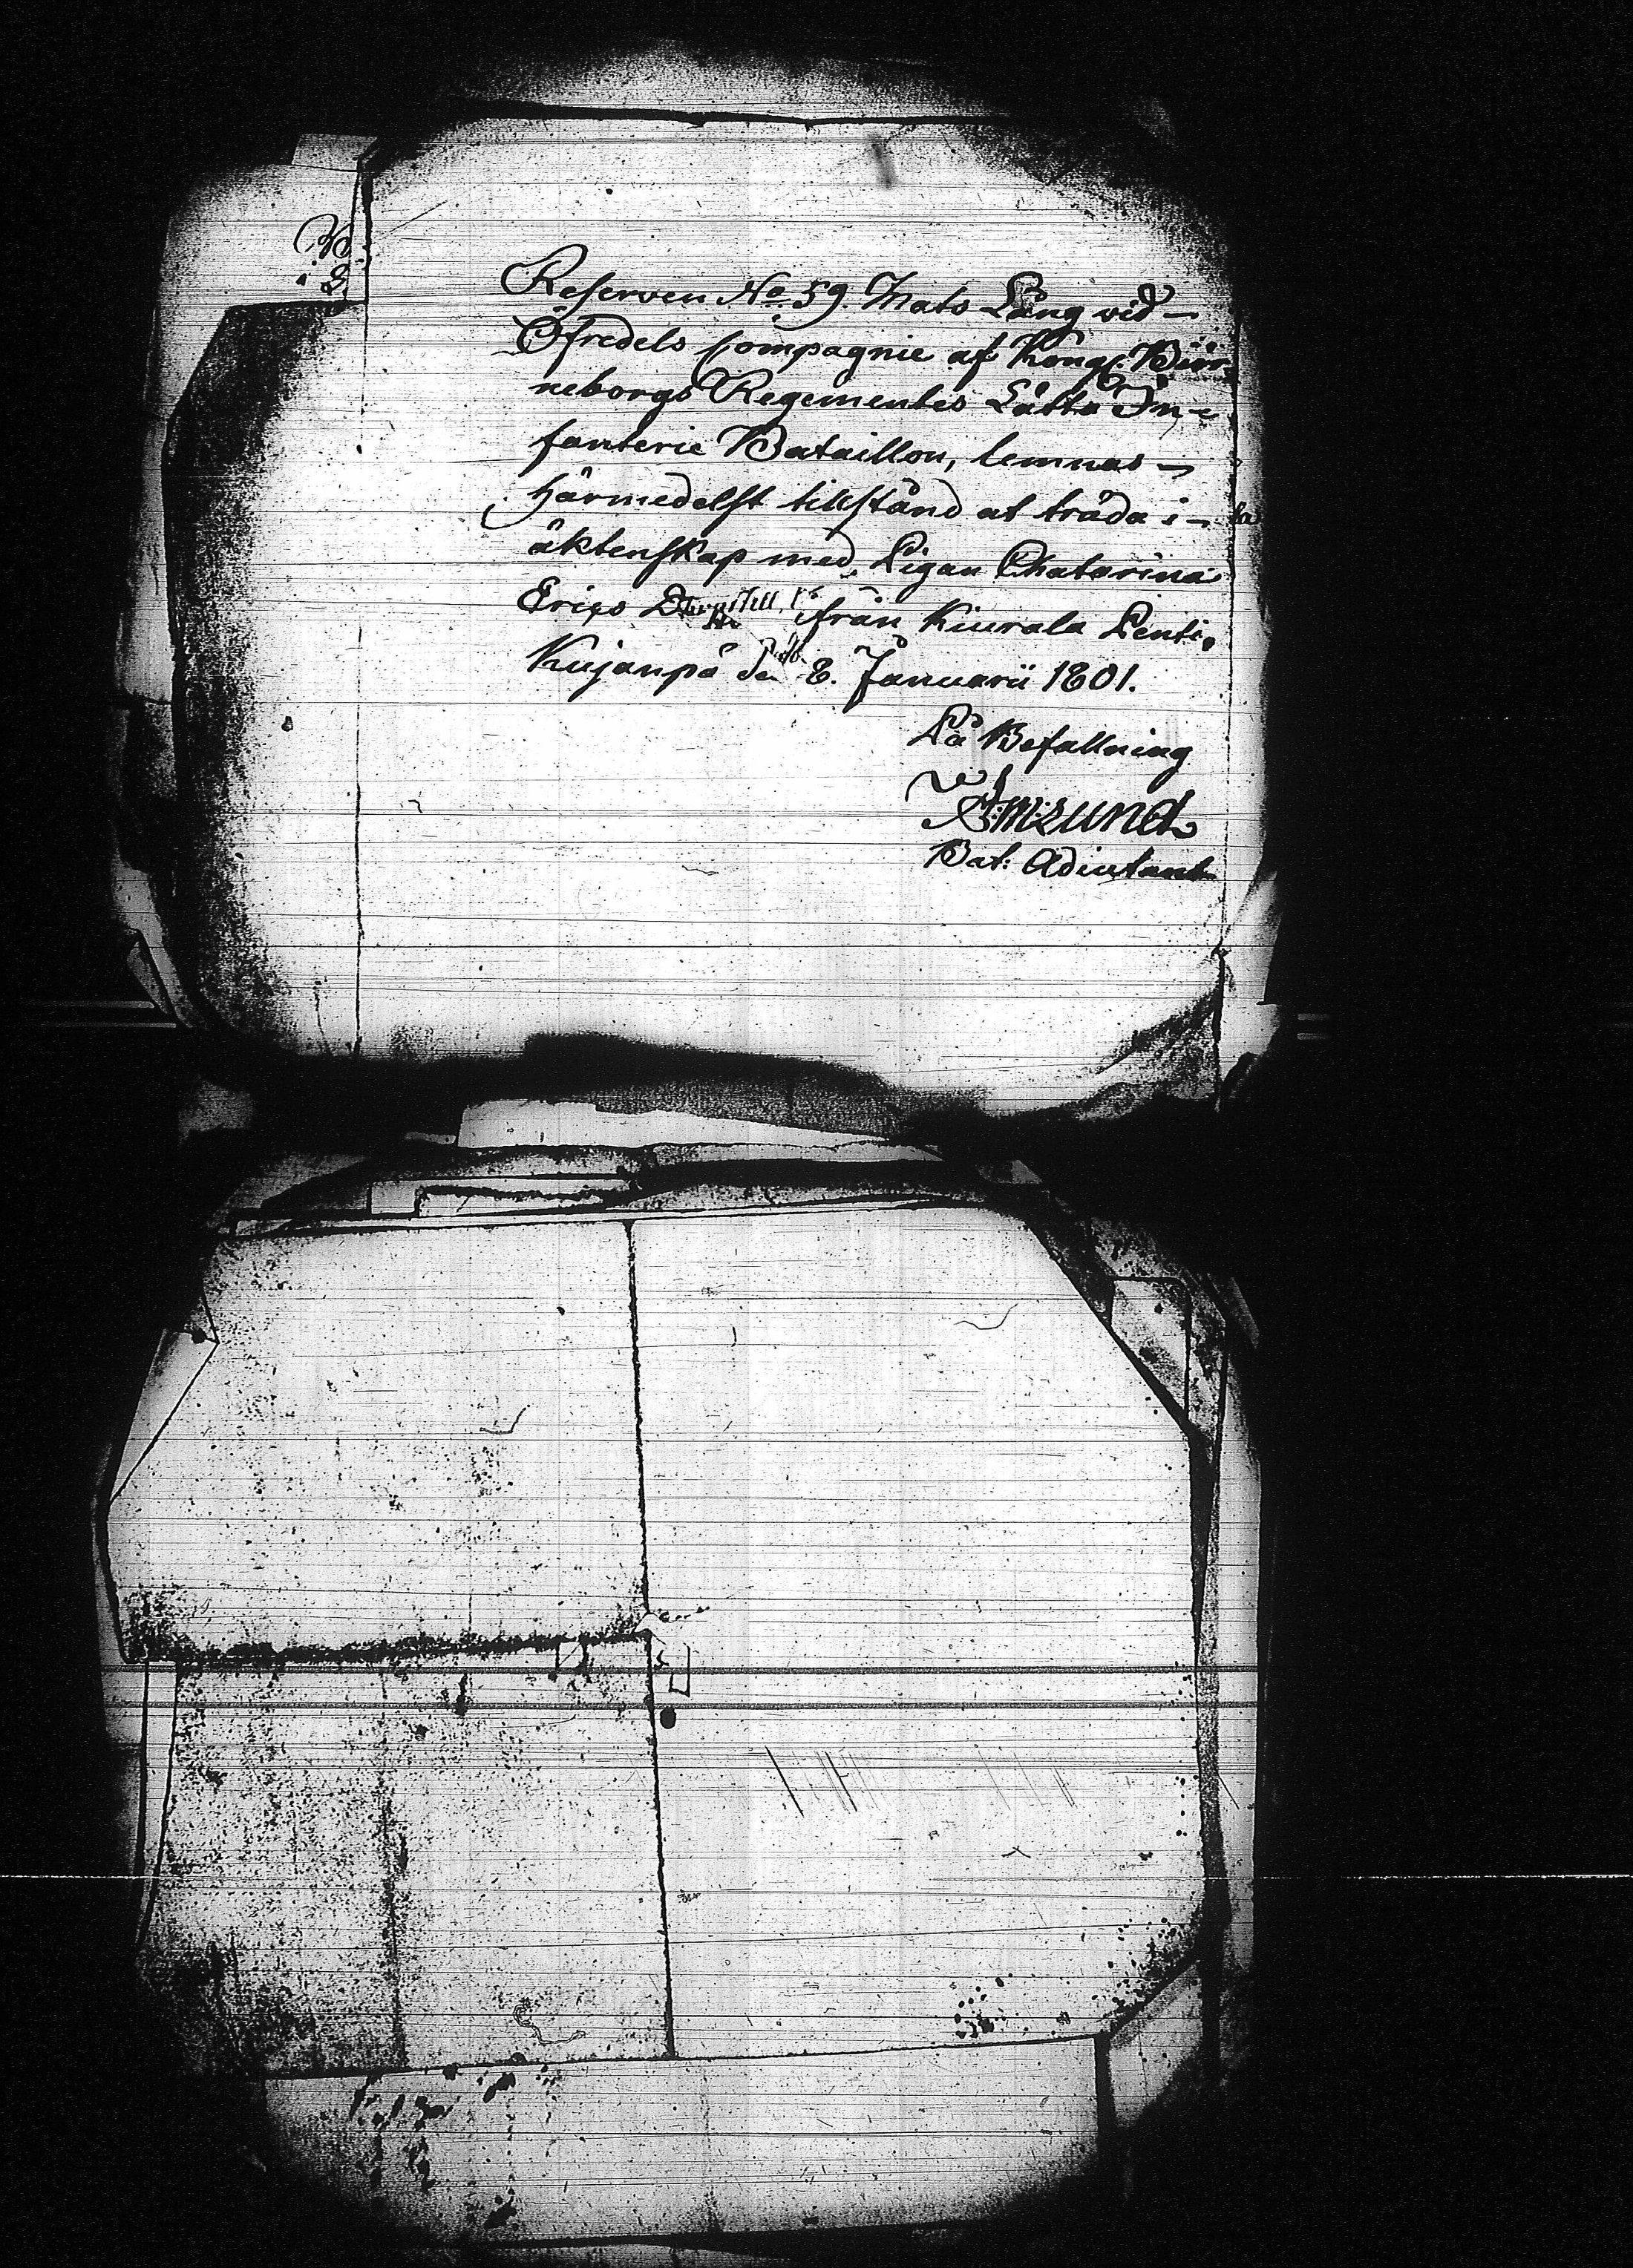 Reserven No 59. Mats Lång vid
Öfredels Compagnie af Kongl. Biör-
neborgs Regementes Lätta In-
fanterie Bataillon, lemnas
härmedelst tillstånd at träda i
äktenskap med Pigan Chatarina
Erics från Kiurala Lenti,
Kujanpä den 8. Januarii 1801.
På Befallning
Bat: Adiutant